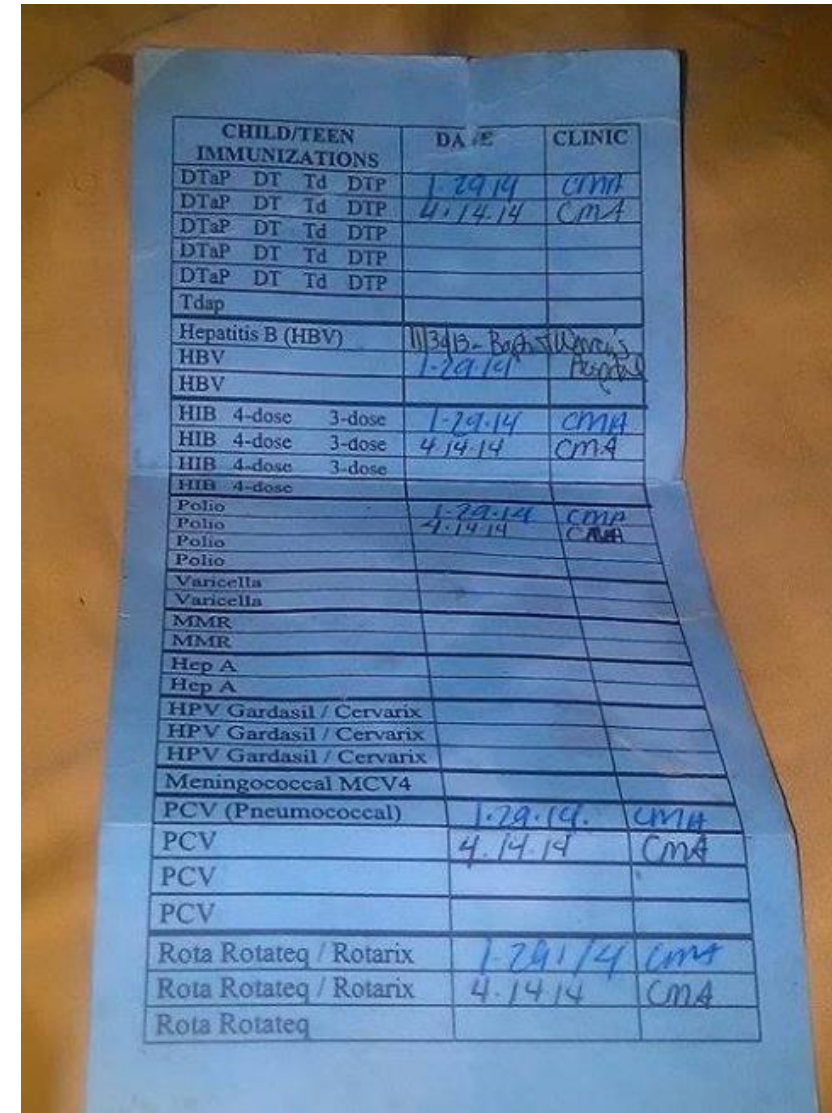 CHILD/TEEN IMMUNIZATIONS DATE CLINIC
DTaP DT Td DTP 1-29-14 CMA
DTaP DT Td DTP 4.14.14 CMA
DTaP DT Td DTP
DTaP DT Td DTP
DTaP DT Td DTP
Tdap
Hepatitis B (HBV) Women's Hospital
HBV 1-29-14
HBV
HIB 4-dose 3-dose 1-29-14 CMA
HIB 4-dose 3-dose 4.14.14 CMA
HIB 4-dose 3-dose
HIB 4-dose
Polio 1-29-14 CMA
Polio 4.14.14 CMA
Polio
Polio
Varicella
Varicella
MMR
MMR
Hep A
Hep A
HPV Gardasil / Cervarix
HPV Gardasil / Cervarix
HPV Gardasil / Cervarix
Meningococcal MCV4
PCV (Pneumococcal) 1-29-14. CMA
PCV 4.14.14 CMA
PCV
PCV
Rota Rotateq / Rotarix 1-29-14 CMA
Rota Rotateq / Rotarix 4.14.14 CMA
Rota Rotateq